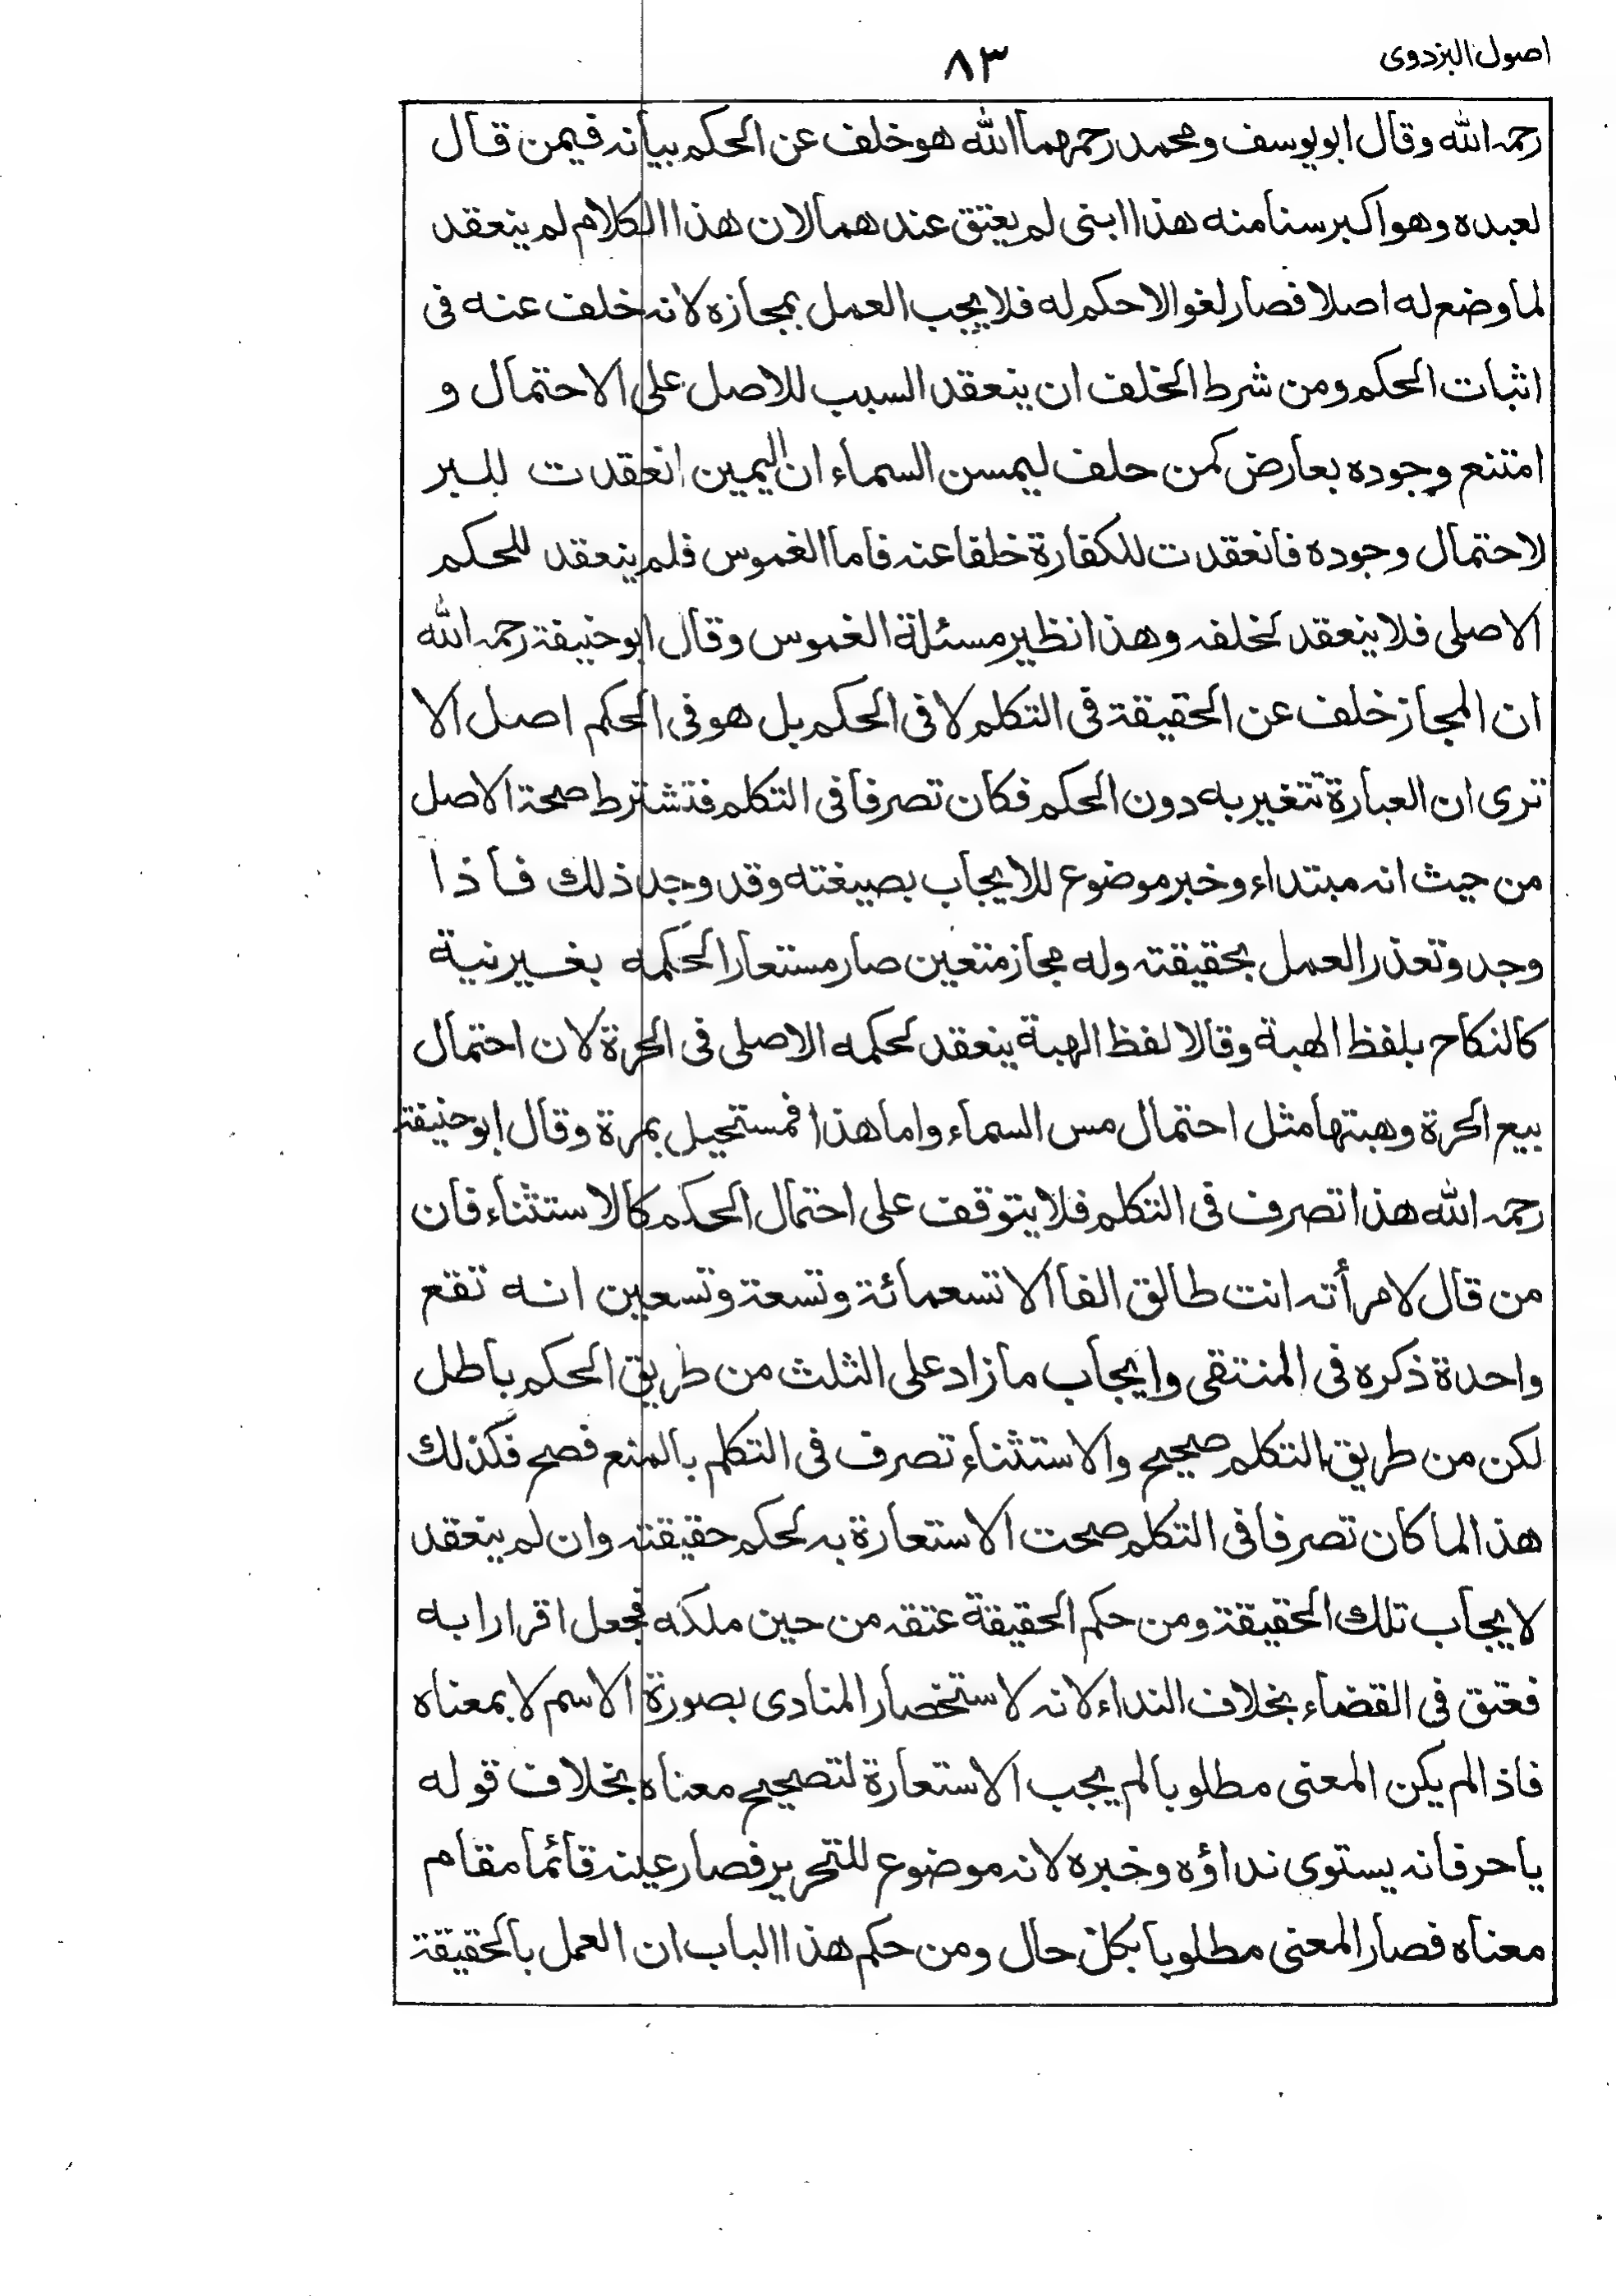 اصول البزدوی
٨٣
رحمہ اللہ وقال ابویوسف ومحمد رحمہما اللہ ھو خلف عن الحکم بیانہ فیمن قال
لعبدہ وھو اکبر سنا منہ ھذا ابنی لم یعتق عندھما لان ھذا الکلام لم ینعقد
لما وضع لہ اصلا فصار لغوا لاحکم لہ فلا یجب العمل بمجازہ لانہ خلف عنہ فی
اثبات الحکم ومن شرط الخلف ان ینعقد السبب للاصل علی الاحتمال و
امتنع وجودہ بعارض کمن حلف لیمسن السماء ان الیمین انعقدت للبر
لاحتمال وجودہ فانعقدت للکفارة خلفا عنہ فاما الغموس فلم ینعقد للحکم
الاصلی فلا ینعقد لخلفہ وھذا نظیر مسئلة الغموس وقال ابوحنیفة رحمہ اللہ
ان المجاز خلف عن الحقیقة فی التکلم لا فی الحکم بل ھو فی الحکم اصل الا
تری ان العبارة تتغیر بہ دون الحکم فکان تصرفا فی التکلم فتشترط صحة الاصل
من حیث انہ مبتداء وخبر موضوع للایجاب بصیغتہ وقد وجد ذلک فاذا
وجد وتعذر العمل بحقیقتہ ولہ مجاز متعین صار مستعارا لحکمہ بغیر نیة
کالنکاح بلفظ الھبة وقالا لفظ الھبة ینعقد لحکمہ الاصلی فی الحرة لان احتمال
بیع الحرة وھبتھا مثل احتمال مس السماء واما ھذا فمستحیل بمرة وقال ابوحنیفة
رحمہ اللہ ھذا تصرف فی التکلم فلا یتوقف علی احتمال الحکم کالاستثناء فان
من قال لامرأتہ انت طالق الفا الا تسعمائة وتسعة وتسعین انہ تقع
واحدة ذکرہ فی المنتقی وایجاب مازاد علی الثلث من طریق الحکم باطل
لکن من طریق التکلم صحیح والاستثناء تصرف فی التکلم بالمنع فصح فکذلک
ھذا لما کان تصرفا فی التکلم صحت الاستعارة بہ لحکم حقیقتہ وان لم ینعقد
لایجاب تلک الحقیقة ومن حکم الحقیقة عتقہ من حین ملکہ فجعل اقرارا بہ
فعتق فی القضاء بخلاف النداء لانہ لاستحضار المنادی بصورة الاسم لا بمعناہ
فاذا لم یکن المعنی مطلوبا لم یجب الاستعارة لتصحیح معناہ بخلاف قولہ
یاحر فانہ یستوی نداؤہ وخبرہ لانہ موضوع للتحریر فصار عینہ قائما مقام
معناہ فصار المعنی مطلوبا بکل حال ومن حکم ھذا الباب ان العمل بالحقیقة